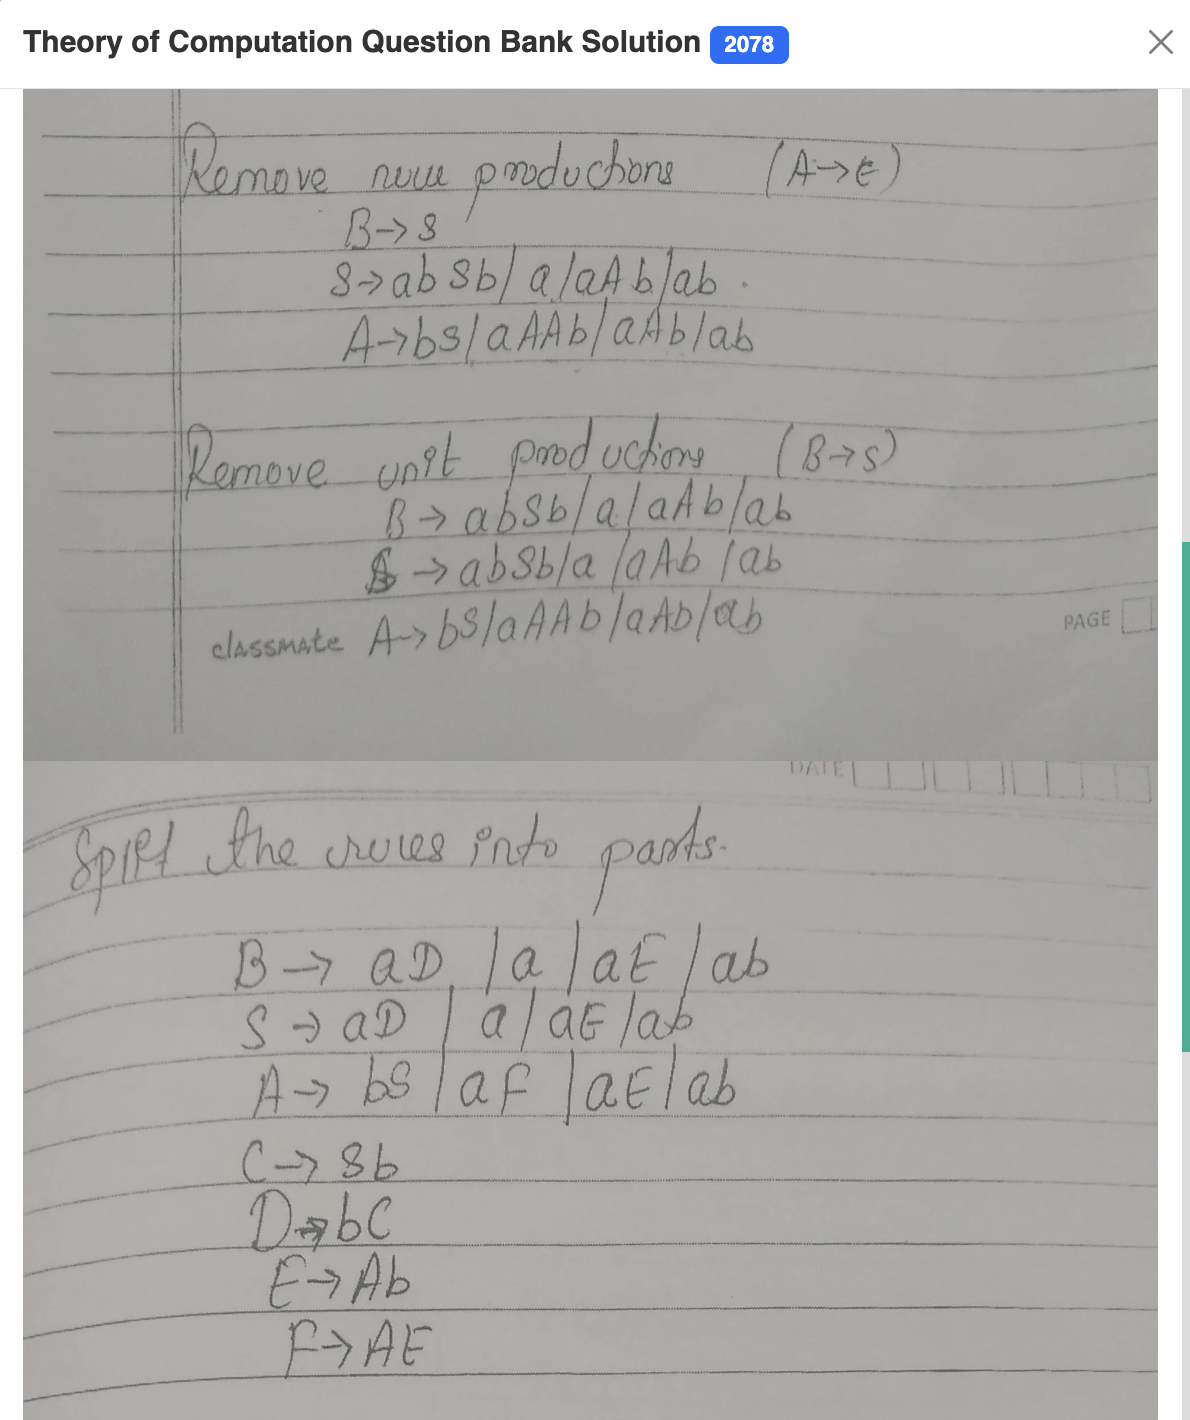 Theory of Computation Question Bank Solution 2078
Remove null productions (A→ε)
B→S
S→abSb/a/aAb/ab.
A→bS/aAAb/aAb/ab
Remove unit productions (B→S)
B→abSb/a/aAb/ab
S→abSb/a/aAb/ab
classmate A→bS/aAAb/aAb/ab
PAGE
DATE
Split the rules into parts.
B→aD/a/aE/ab
S→aD/a/aE/ab
A→bS/aF/aE/ab
C→Sb
D→bC
E→Ab
F→AE